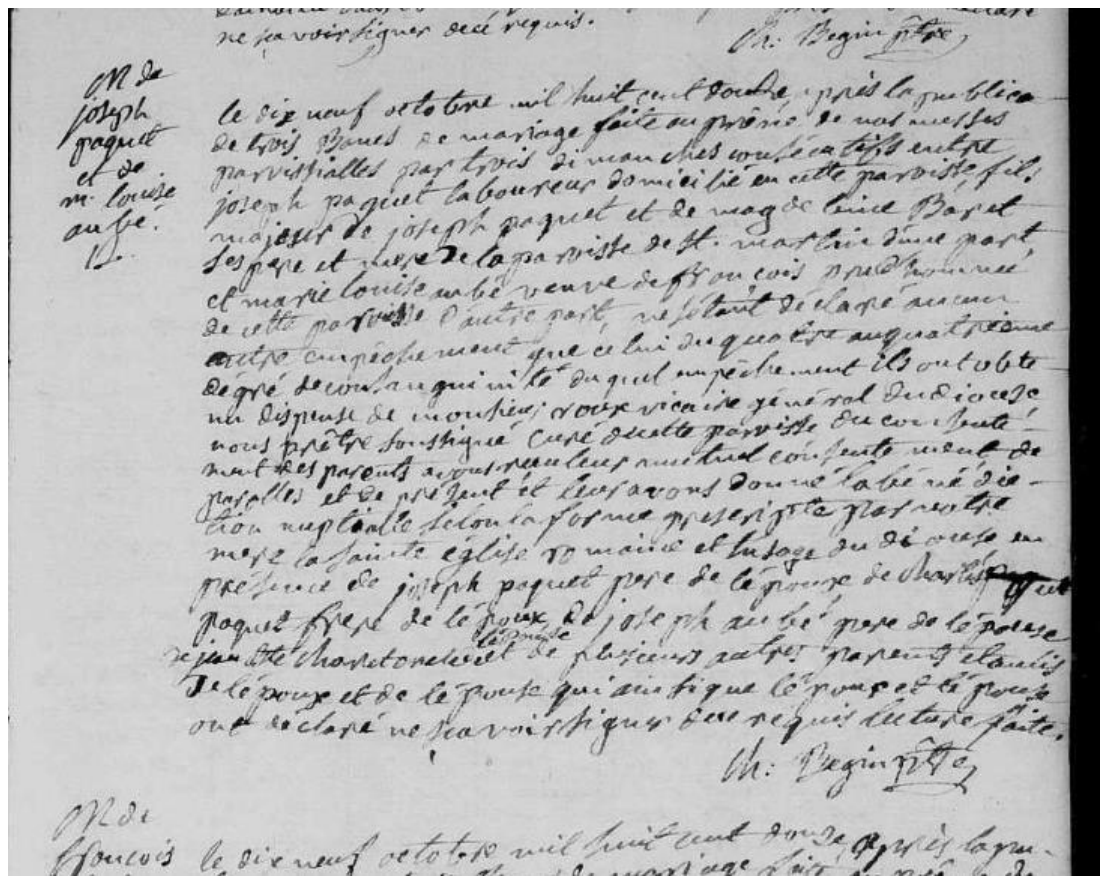 ne savoir signer de ce requis.
Ch: Begin ptre
M de
joseph
paquet
et de
m. louise
aubé.
le dix neuf octobre mil huit cent douze, après la publica
de trois Bancs de mariage faite au prône de nos messes
parroissialles par trois dimanches consécutifs entre
joseph paquet laboureur domicilié en cette parroisse, fils
majeur de joseph paquet et de magdeleine Baret
ses pere et mere de la parroisse de St. martin d'une part,
et marie louise aubé veuve de françois prud'homme
de cette parroisse d'autre part, ne s'étant déclaré aucun
autre empêchement que celui du quatre au quatrieme
dégré de consanguinité duquel empêchement ils ont obte
nu dispense de monsieur roux vicaire général du diocese
nous prêtre soussigné curé de cette parroisse du consente-
ment des parents avons reçu leur mutuel consentement de
paralles et de présent et leur avons donné la bénédic-
tion nuptialle selon la forme prescripte par notre
mere la sainte église romaine et l'usage du diocese en
présence de joseph paquet pere de l'époux de charles
paquet frere de l'époux, de joseph aubé pere de l'épouse
l'épouse
de et de plusieurs autres parents et amis
de l'époux et de l'épouse qui ainsi que l'époux et l'épouse
ont déclaré ne savoir signer de ce requis lecture faite.
Ch: Begin ptre
M de
francois
le dix neuf octobre mil huit cent douze, après la pu-